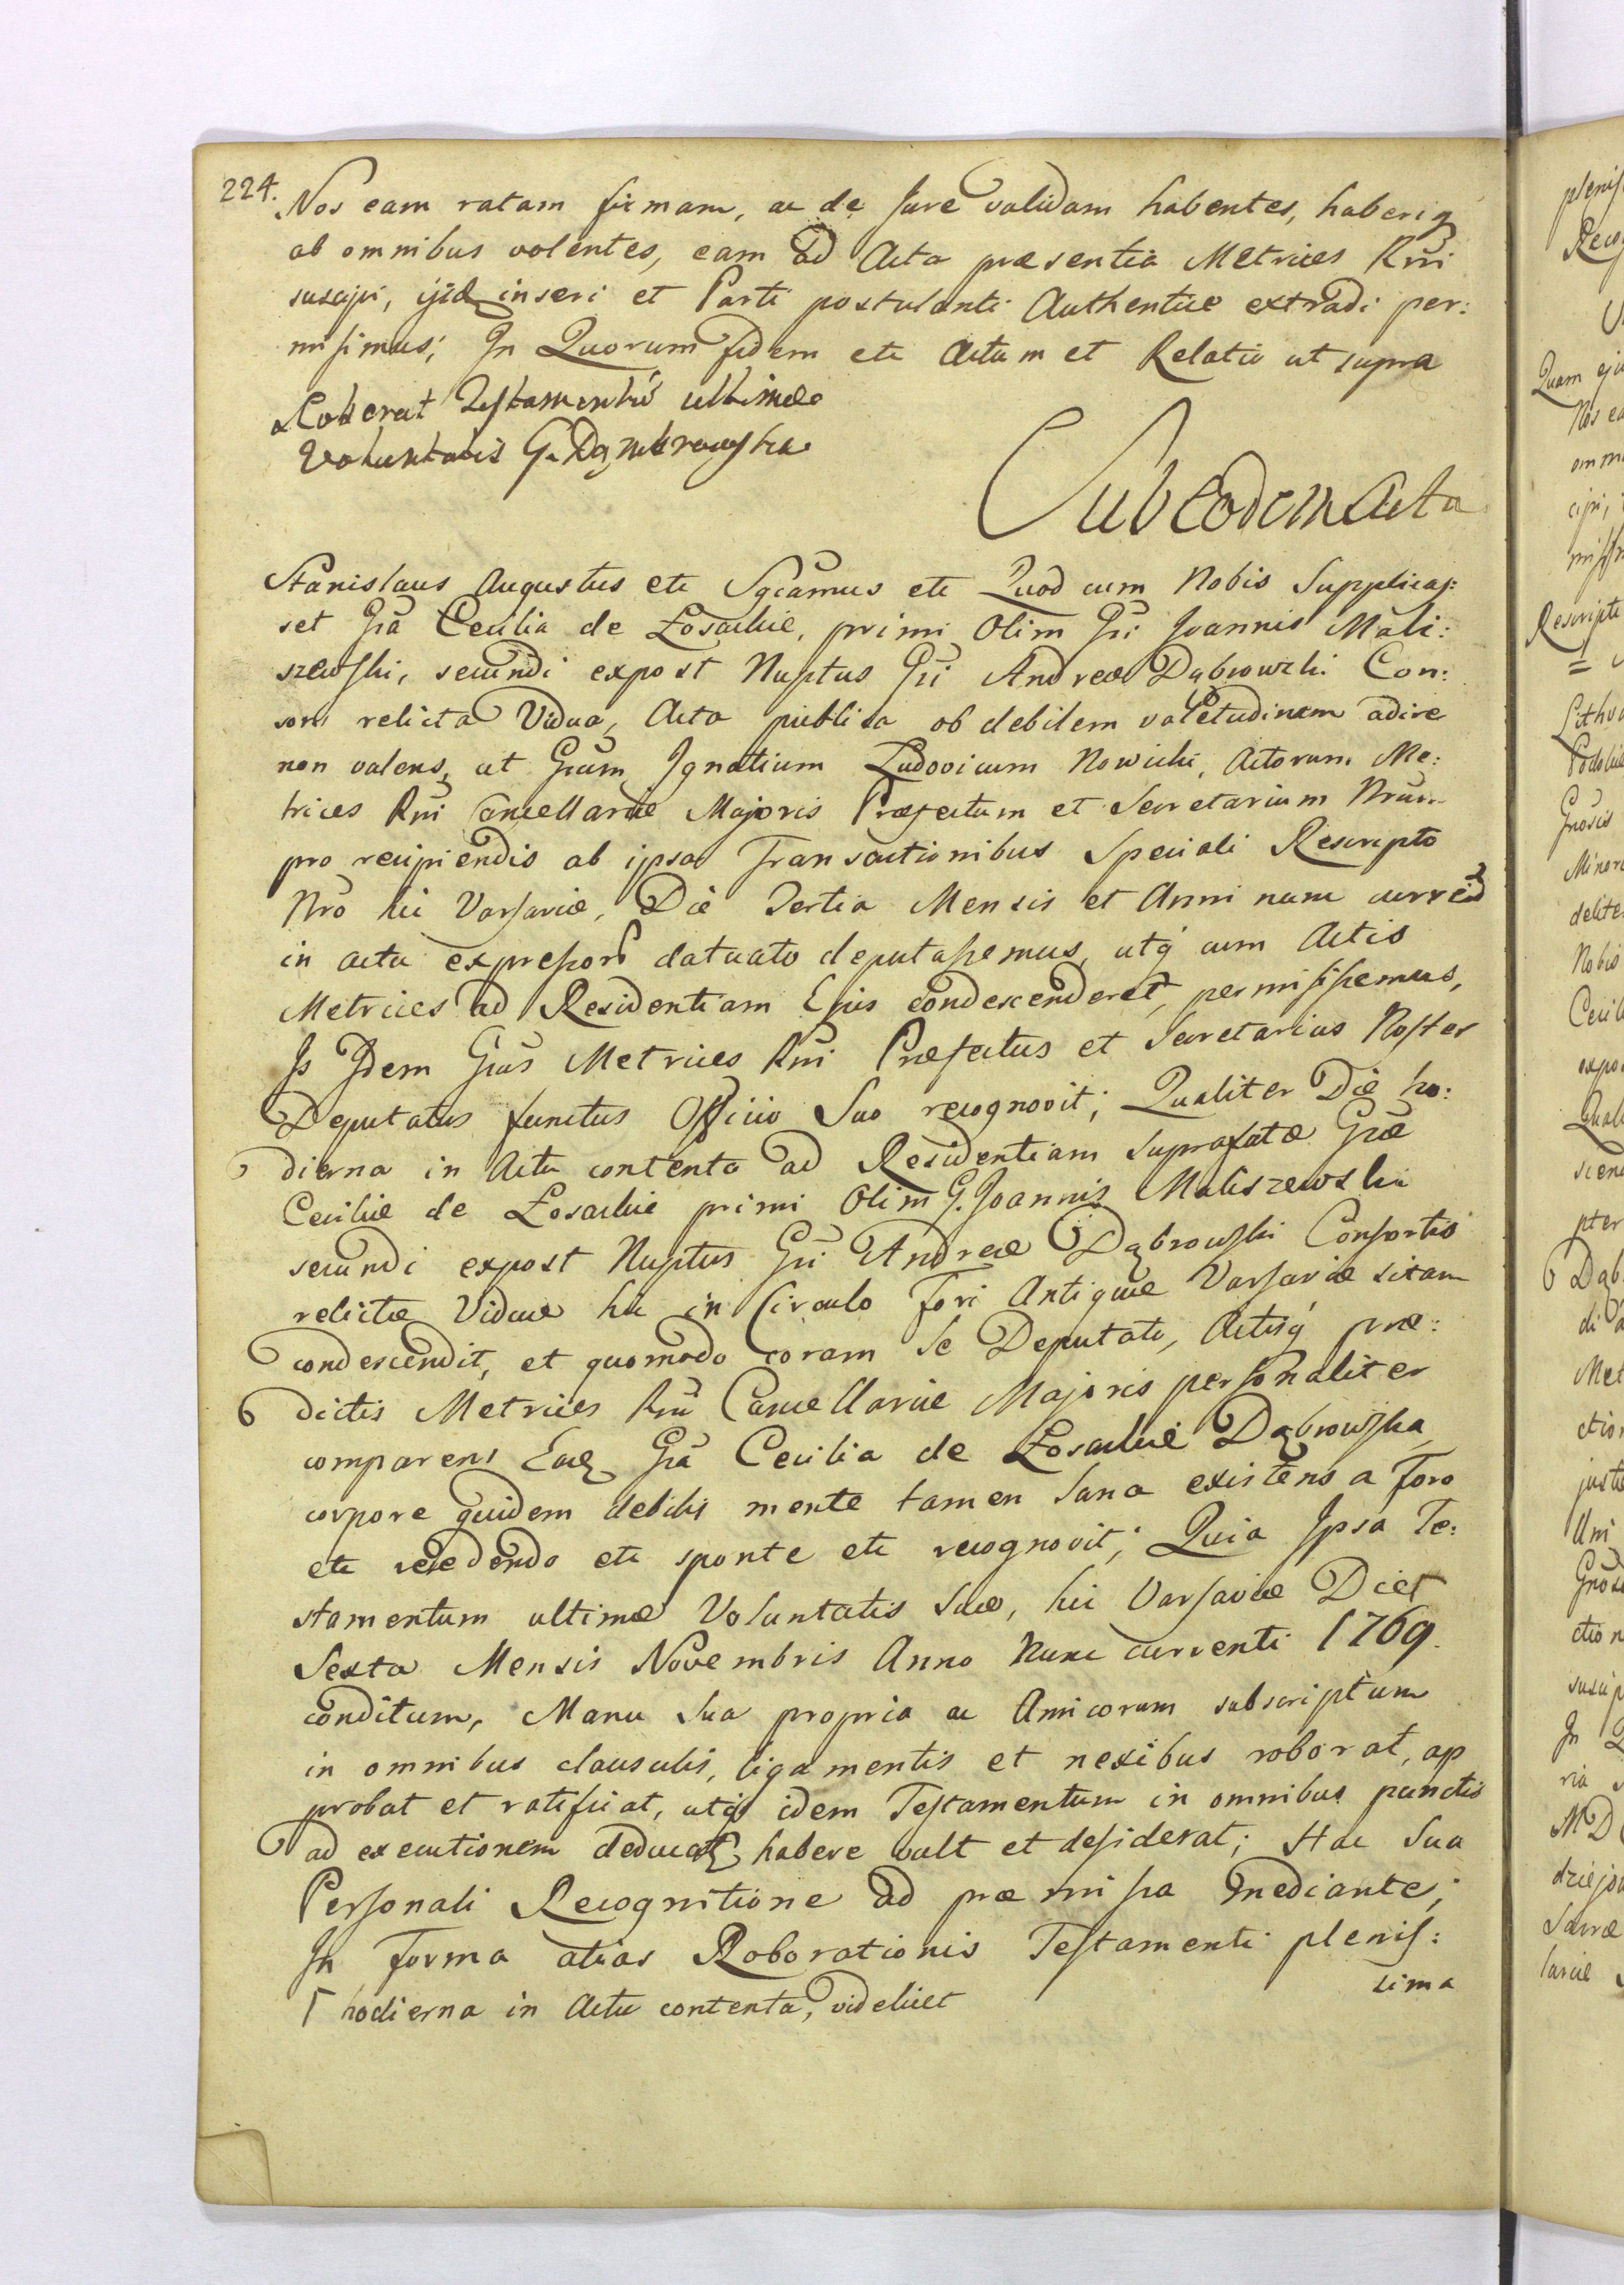 224.
Nos eam ratam firmam, ac de Jure validam habentes, haberiq
ab omnibus volentes, eam ad Acta præsentia Metrices Rñi
suscipi, ijsdq inseri et Parti postulanti Authentice extradi per:
misimus; In Quorum fidem etc Actum et Relatio ut supra
Roborat Testamentũ ultimæ
Voluntatis G. Dąmbrowska
Sub Eodem Actu
Stanislaus Augustus etc Sgcamus etc Quod cum Nobis Supplicas:
set Gña Cecilia de Łosackie, primi Olim Gñi Joannis Mali:
szewski, secundi expost Nuptus Gñi Andreæ Dąbrowski Con:
sors relicta Vidua, Acta publica ob debilem valetudinem adire
non valens, ut Gñum Ignatium Ludovicum Nowicki, Actorum Me:
trices Rñi Cancellariæ Majoris Præfectum et Secretarium Nrũm
pro recipiendis ab ipsa Transactionibus Speciali Rescripto
Nrõ hic Varsaviæ, Die Tertia Mensis et Anni nunc curren
in actu expressorũ datuato deputassemus, utq́ cum Actis
Metrices ad Residentiam Ejus condescenderet, permisissemus,
Is Idem Gñus Metrices Rñi Præfectus et Secretarius Noster
Deputatus functus Officio Suo recognovit; Qualiter Die ho:
dierna in Actu contenta ad Residentiam suprafatæ Gñæ
Ceciliæ de Łosackie primi Olim G. Joannis Maliszewski
secundi expost Nuptus Gñi Andreæ Dąbrowski Consortis
relictæ Viduæ hic in Circulo Fori Antiquæ Varsaviæ sitam
condescendit, et quomodo coram Se Deputato, Actisq́ præ:
dictis Metrices Rñi Cancellariæ Majoris personaliter
comparens Eadq Gña Cecilia de Łosackie Dąbrowska
corpore quidem debilis mente tamen sana existens a Foro
etc recedendo etc sponte etc recognovit; Quia Ipsa Te:
stamentum ultimæ Voluntatis Suæ, hic Varsaviæ Die Γ
Sexta Mensis Novembris Anno Nunc currenti 1769.
conditum, Manu Sua propria ac Amicorum subscriptum
in omnibus clausulis, ligamentis et nexibus roborat, ap
probat et ratificat, utq́ idem Testamentum in omnibus punctis
ad executionem deducatq habere vult et desiderat; Hac Sua
Personali Recognitione ad præmissa mediante;
In Forma alias Roborationis Testamenti plenis:
sima
Γ hodierna in Actu contenta, videlicet